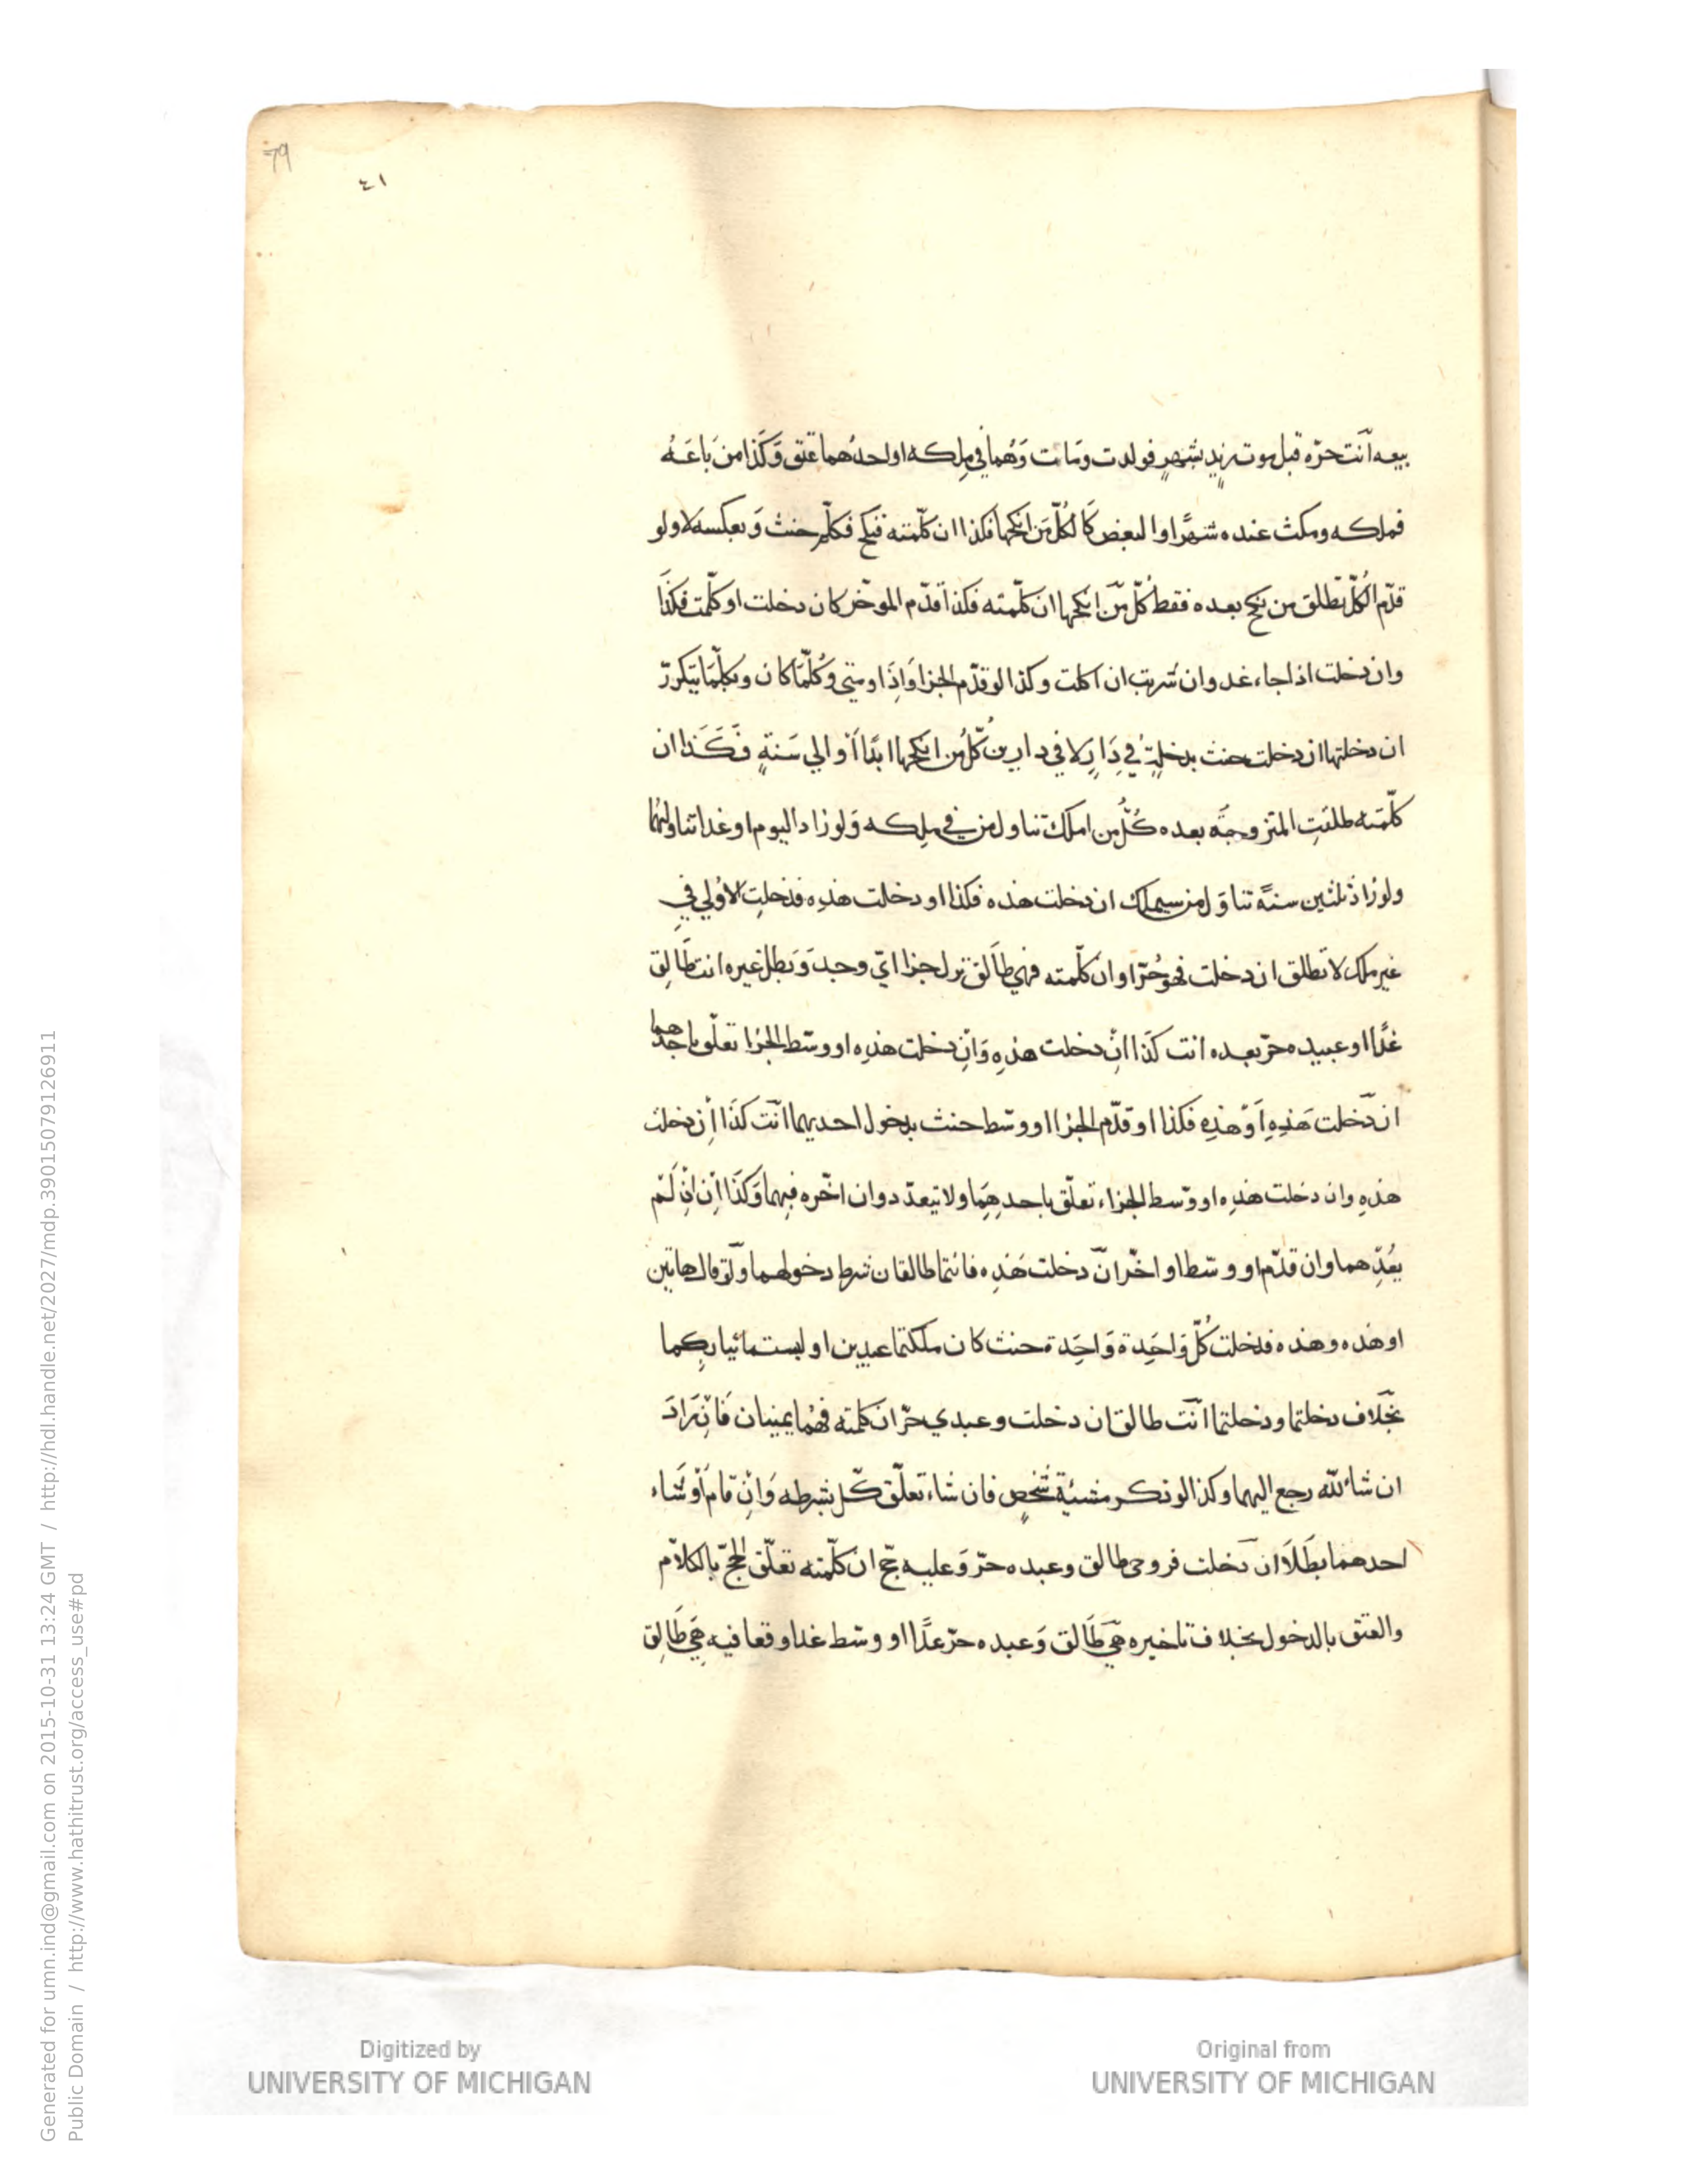 79
٤١
بيعه انت حرّة قبل موت زيد بشهرٍ فولدت ومَاتت وَهُما في مِلكه او احدُهما عتق وَكَذا من بَاعَهُ
فملكه ومكث عنده شهرًا او البعض كَا لكُلّ مَن انكحها فكذا ان كلّمته فنكح فكلّم حنث وَبعكسه لا ولو
قدّم الكُلّ تطلق من نكح بعده فقط كُلّ مَن انكحها ان كلّمته فكذا قدّم الموخّر كان دخلت او كلّمت فكذَا
وان دخلت اذا جاء غد وان شربت ان اكلت وكذا لو قدّم الجزا وَاِذَا ومتى وكُلّمَا كان وبكلّمَا يتكررّ
ان دخلتها ان دخلت حنث بدخلةٍ في دَارٍ لا في دارين كُلّ مَن انكحها ابدًا أو الي سَنةٍ فَكَذا ان
كلّمته طلقتِ المتزوجَة بعده كُلّ من املك تناول من في مِلكه وَلو زاد اليوم او غدا تناولهُما
ولو زادَ ثلثين سنةً تناوَل من سيملك ان دخلت هذه فكذا او دخلت هذِه فدخلتِ الاولي في
غير ملك لا تطلق ان دخلت فهو حُرّ او ان كلّمته فهي طالق نزل جزا ايّ وجد وَبَطل غيره انت طَالِق
غدًا او عبيده حرّ بعده انت كذَا انْ دخلت هذِهِ وَانْ دخلت هذِه او وسّط الجزا تعلّق باحدهما
ان دَخلت هَذِهِ اَوْ هذِه فكذا او قدّم الجزا او وسّط حنث بدخول احديهما انت كَذَا اِن دخلت
هذه وان دخلت هذِه او وسّط الجزاء تعلّق باحدهِمَا ولا يتعدّد وان اخّره فبهما وَكَذَا اِن اِنْ لَمْ
يُعُدّ هما وان قدّم او وسّط او اخّر ان دخلت هَذِه فانتما طالقان شرط دخولهما ولو قال هاتين
او هذه وهذه فدخلت كُلّ وَاحَدة وَاحَِدة حنث كان ملكتما عبدين او لبستما ثيابكما
بخلاف دخلتما ودخلتما انت طالق ان دخلت وعبدي حرّ ان كلمته فهُما يمينان فَاِنْ زَادَ
ان شاء اللّه رجع اليهما وكذا لو ذكر مشيئة شخصٍ فان شاء تعلّق كّل بشرطه وَاِنْ قام أو شَاء
احدهما بطَلَا ان دَخلت فروحي طالق وعبده حرّ وَعليه حجّ ان كلّمته تعلّق الحجّ بالكلام
والعتق بالدخول بخلاف تاخيره هي طَالق وَعبده حرّ غدًا او وسّط غدا وقعا فيه هِيَ طَالِق
Digitized by
UNIVERSITY OF MICHIGAN
Original from
UNIVERSITY OF MICHIGAN
Generated for umn.ind@gmail.com on 2015-10-31 13:24 GMT / http://hdl.handle.net/2027/mdp.39015079126911
Public Domain / http://www.hathitrust.org/access_use#pd